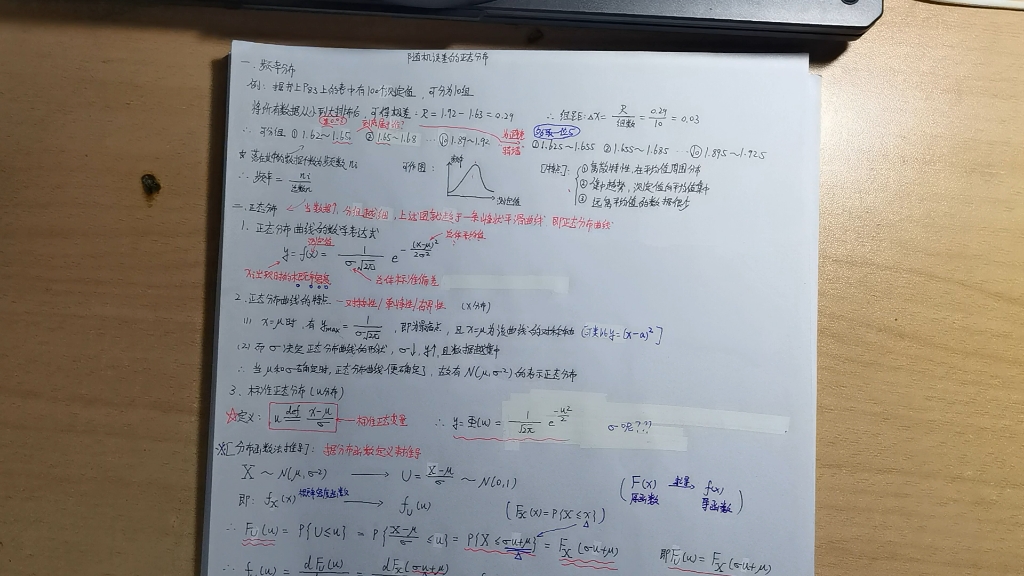 随机误差的正态分布
一、频率分布
例：据书上P83上的表中有100个测定值，可分为10组
将所有数据从小到大排布后，可得极差：R = 1.92 - 1.63 = 0.29 ∴ 组距：ΔX = R/组数 = 0.29/10 = 0.03
∴ 可分组 ① 1.62~1.65 ② 1.65~1.68 … ⑩ 1.89~1.92 ① 1.625~1.655 ② 1.655~1.685 … ⑩ 1.895~1.925
☆ 落在其中的数据个数为频数 ni 可作图： 频率 测定值 [特点]：① 离散特性，在平均值周围分布
∴ 频率 = ni/总数n ② 集中趋势，测定值向平均值集中
③ 远离平均值的数据很少
二、正态分布 当数据↑，分组越细，上述图就趋于一条峰状平滑曲线 即正态分布曲线
1. 正态分布曲线的数学表达式
测定值 总体平均值
y = f(x) = 1/(σ√2π) e^-(x-μ)²/2σ²
总体标准偏差
2. 正态分布曲线的特点 — 对称性/单峰性/有界性 (x分布)
(1) x=μ时，有 ymax = 1/(σ√2π)，即为最高点，且 x=μ为该曲线的对称轴 [可类比y=(x-a)²]
(2) 而σ决定正态分布曲线的形状，σ↓，y↑，且数据越集中
∴ 当μ和σ确定时，正态分布曲线便确定了，故有 N(μ,σ²)的表示正态分布
3. 标准正态分布 (u分布)
☆定义： u def (x-μ)/σ 标准正态变量 ∴ y = Φ(u) = 1/√2π e^-u²/2 σ呢???
※[分布函数法推导]：据分布函数定义来推导
X ~ N(μ,σ²) ⟶ U = (X-μ)/σ ~ N(0,1) (F(x) 求导→ f(x)
原函数 导函数)
即：fX(x) 概率密度函数 ⟶ fU(u) (FX(x) = P{X≤x})
∴ FU(u) = P{U≤u} = P{(X-μ)/σ ≤u} = P{X ≤σu+μ} = FX(σu+μ) 即FU(u) = FX(σu+μ)
∴ fU(u) = dFU(u) = dFX(σu+μ)